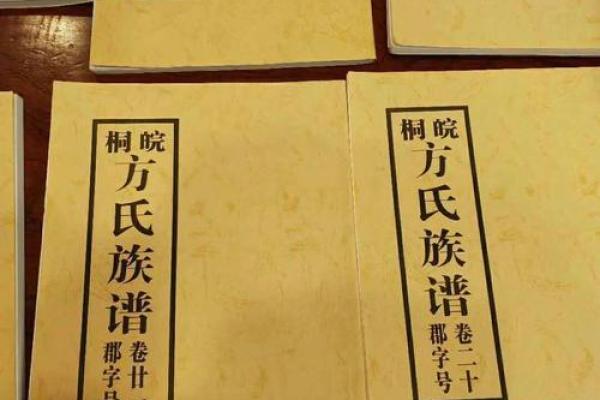 皖桐
方氏族谱
卷二十
郡字号
皖桐
方氏族谱
卷廿
郡字号